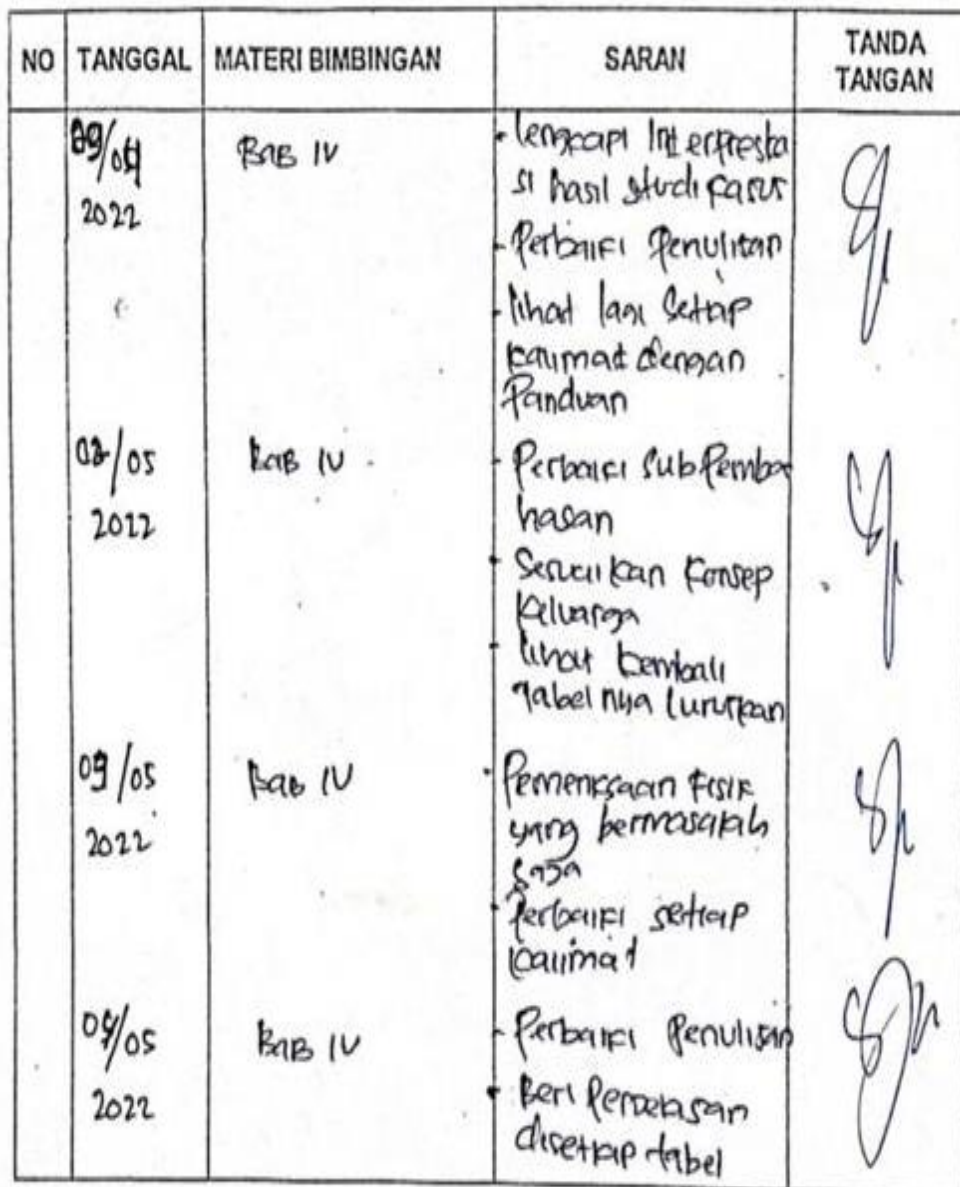 NO TANGGAL MATERI BIMBINGAN SARAN TANDA TANGAN
BAB IV - lengkapi Interpresta
2022 si hasil studi kasus
- Perbaiki Penulisan
- lihat lagi Setiap
kalimat dengan
Panduan
/05 BAB IV - Perbaiki Sub Pemba
2022 hasan
- Sesuaikan Konsep
keluarga
- lihat kembali
tabel nya luruskan
/05 BAB IV - Pemeriksaan Fisik
2022 yang bermasalah
saja
- Perbaiki setiap
kalimat
/05 BAB IV - Perbaiki Penulisan
2022 - Beri Penjelasan
disetiap tabel